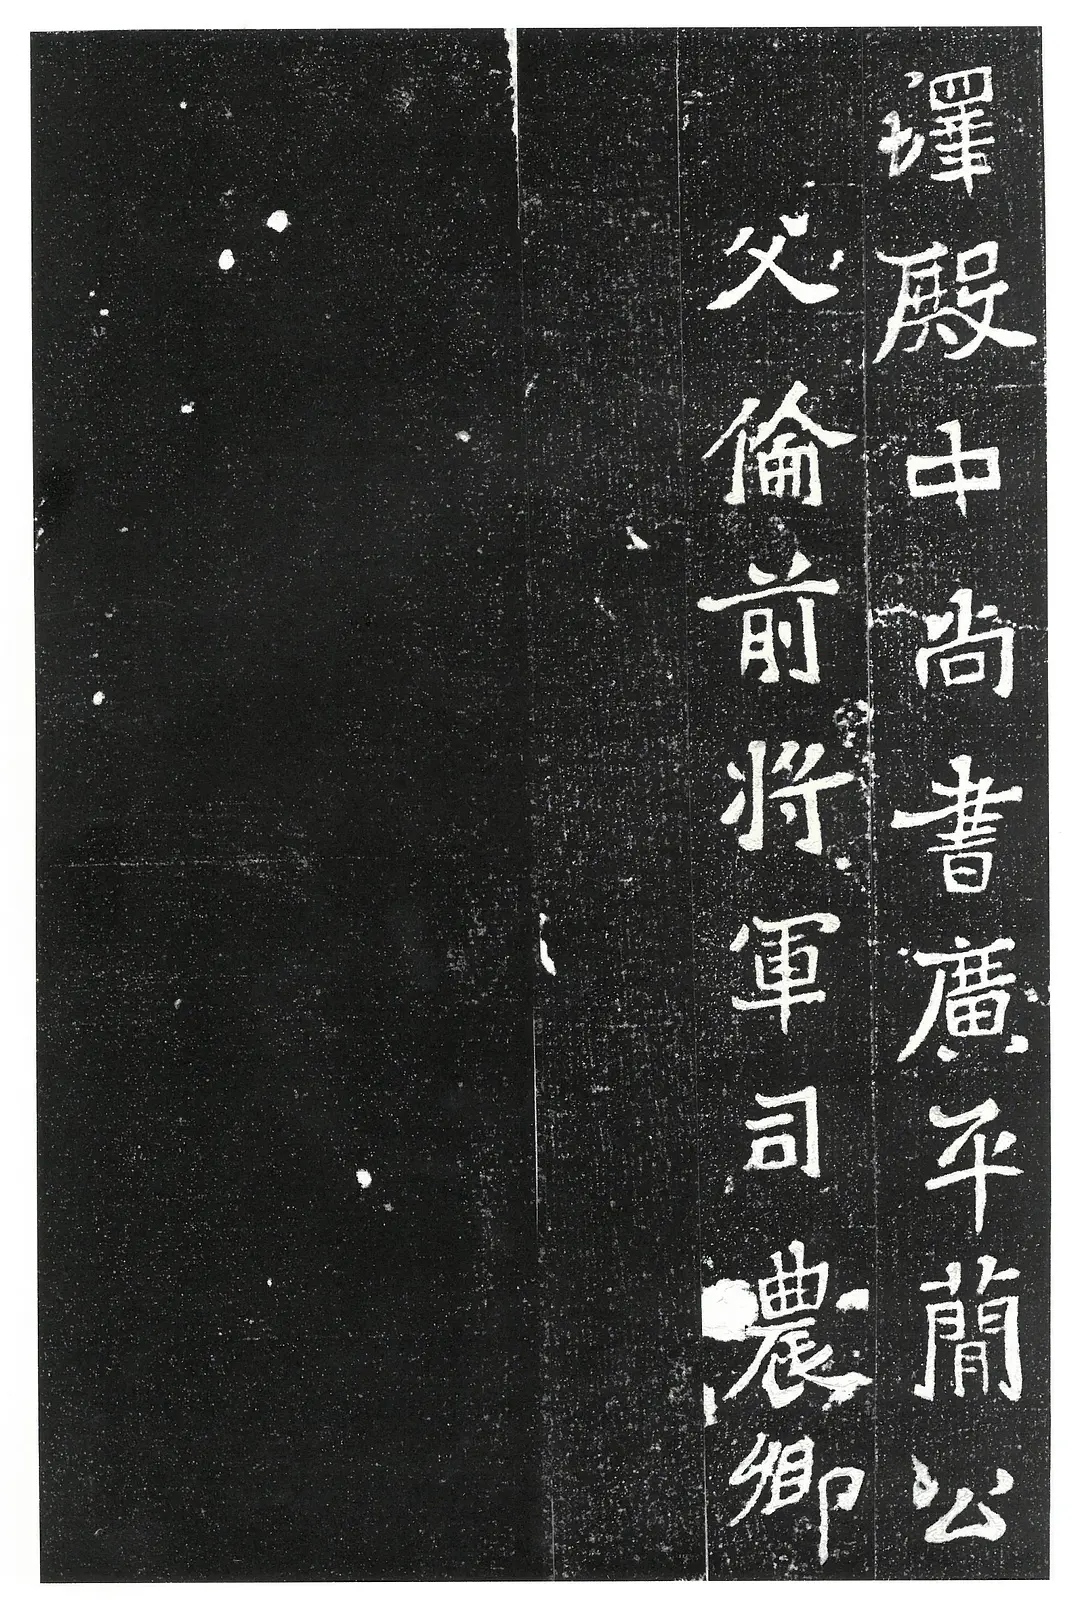 墿殿中尚書廣平蕑公
父倫前將軍司農卿